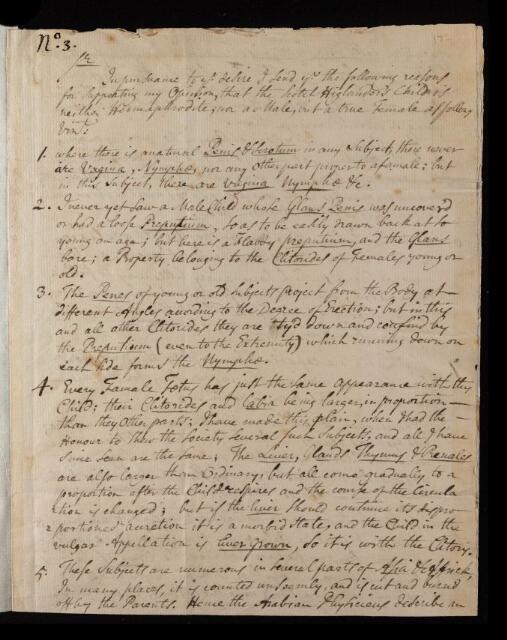 No. 3.
Sr
In pursuance to yr. desire I send yu. the following reasons
for supporting my Opinion, that the Scotch Highlander's Child is
neither Hermaphrodite; nor a Male, but a true Female as follows
1. where there is a natural Penis & Scrotum in any Subject, there never
are Vagina, Nymphæ, nor any other part proper to a female: but
in this Subject, there are vagina Nymphæ &c.
2. I never yet saw a Male Child whose Glans Penis was uncover'd
or had a loose Preputium, so as to be easily drawn back at so
young an age; but here is a Flabby preputium, and the Glans
bare; a Property belonging to the Clitorides of Females young or
old.
3. The Penes of young or old Subjects project from the Body at
different Angles acording to the Degree of Erection; but in this
and all other Clitorides they are ty'd down and confin'd by
the Preputium (even to the Extremity) which running down on
each side forms the Nymphæ.
4. Every Female Fœtus has just the same Appearance with this
Child; their Clitorides and Labia being larger, in proportion
than they other parts: I have made this plain, when I had the
Honour to shew the Society several such Subjects, and all I have
since seen are the same; The Liver, Glands Thymus & Renales
are also larger than Ordinary, but all come gradually to a
proportion after the Child respires and the course of the Circula
tion is changed; but if the liver should continue its dispro
portioned accretion it is a morbid State, and the Child in the
vulgar Appellation is liver Grown, so it is with the Clitory.
5. These Subjects are numerous in several parts of Asia & Africk,
In many places, it is counted unseemly, and is cut and burnd
off by the Parents. Hence the Arabian Physicians describe an